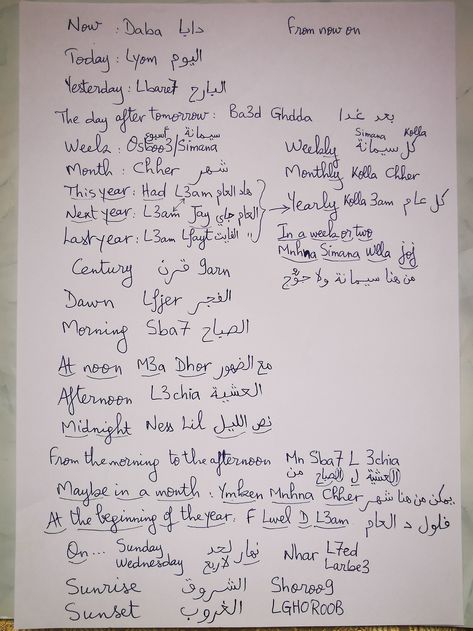 Now : Daba دابا From now on
Today : Lyom اليوم
Yesterday : Lbare7 البارح
The day after tomorrow : Ba3d Ghdda بعد غدا
Week : Osboo3/Simana أسبوع سيمانة Weekly كل سيمانة Simana Kolla
Month : Chher شهر Monthly Kolla Chher
This year : Had L3am هاد العام
Next year : L3am Jay العام جاي Yearly Kolla 3am كل عام
Last year : L3am Lfayt الفايت "
In a week or two
Mnhna Simana Wlla joj
من هنا سيمانة ولا جوج
Century قرن 9arn
Dawn Lfjer الفجر
Morning Sba7 الصباح
At noon M3a Dhor مع الضهور
Afternoon L3chia العشية
Midnight Ness Lil نص الليل
From the morning to the afternoon Mn Sba7 L 3chia
من الصباح ل العشية
Maybe in a month : Ymken Mnhna Chher يمكن من هنا شهر
At the beginning of the year : F Lwel D L3am فلول د العام
On... Sunday نهار لحد Nhar L7ed
Wednesday لاربع Larbe3
Sunrise الشروق Shoroo9
Sunset الغروب LGHOROOB